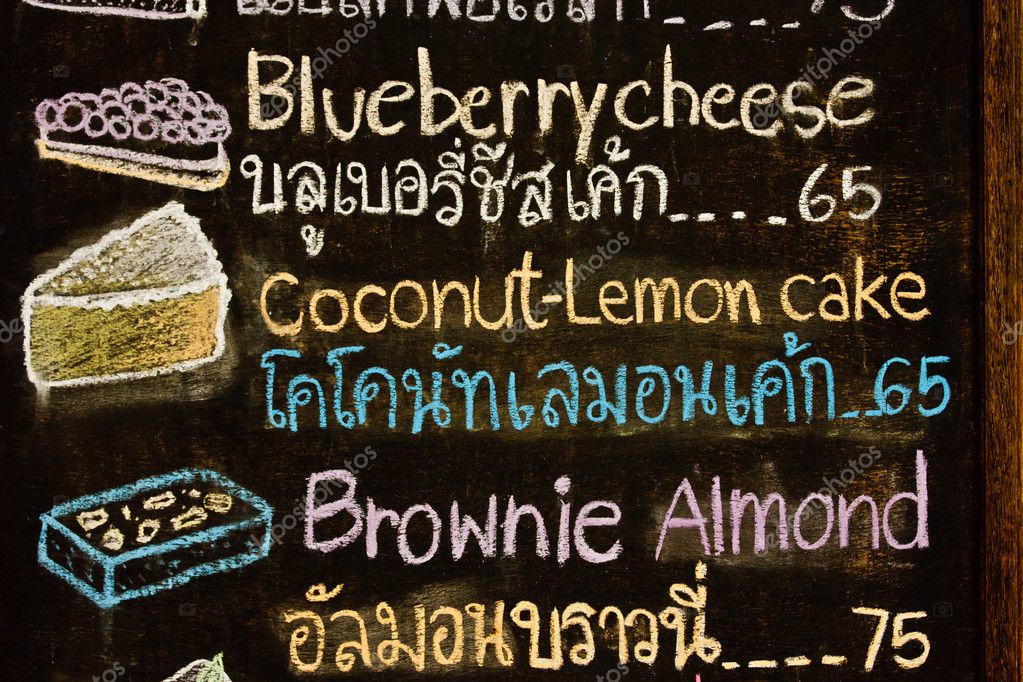 75
Blueberrycheese
บลูเบอรี่ชีสเค้ก....65
Coconut-Lemon cake
โคโคนัทเลมอนเค้ก..65
Brownie Almond
อัลมอนบราวนี่....75